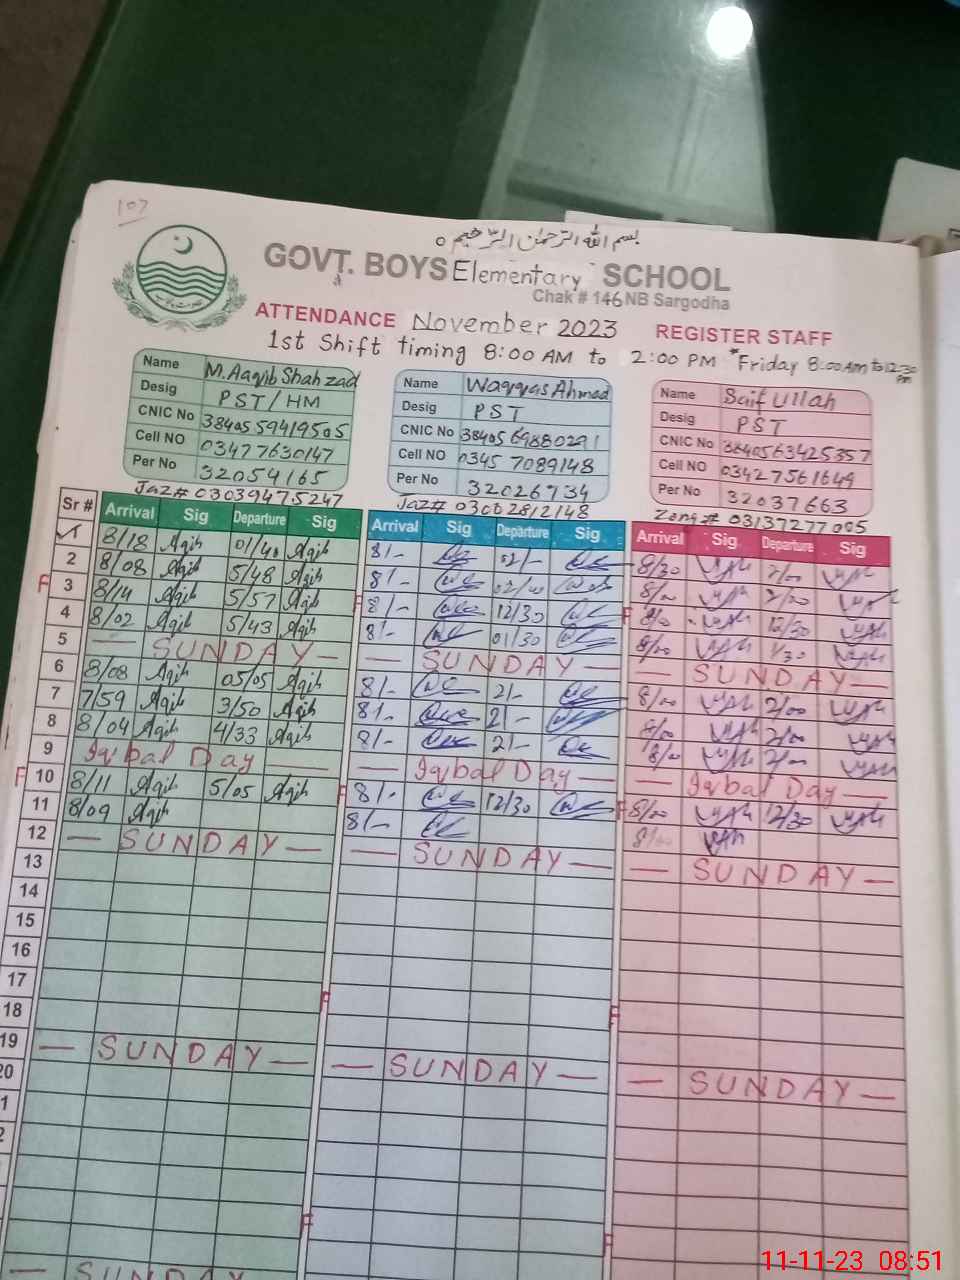 107
بسم الله الرحمٰن الرحیم
GOVT. BOYS Elementary SCHOOL
Chak # 146 NB Sargodha
ATTENDANCE November 2023 REGISTER STAFF
1st Shift timing 8:00 AM to 2:00 PM *Friday 8:00 Am to 12:30 Pm
Name M. Aaqib Shahzad
Desig PST/HM
CNIC No 3840559419505
Cell NO 03477630147
Per No 32054165
Jaz# 03039475247
Name Waqqas Ahmad
Desig PST
CNIC No 3840569880291
Cell NO 0345 7089148
Per No 32026734
Jaz# 03002812148
Name Saif Ullah
Desig PST
CNIC No 3840563425357
Cell NO 03427561649
Per No 32037663
Zong# 03137277005
Sr # Arrival Sig Departure Sig Arrival Sig Departure Sig Arrival Sig Departure Sig
1 8/18 Aqib 01/40 Aqib 8/- 02/- 8/20 2/00
2 8/08 Aqib 5/48 Aqib 8/- 02/00 8/00 2/00
F 3 8/14 Aqib 5/57 Aqib F 8/- 12/30 F 8/0 12/30
4 8/02 Aqib 5/43 Aqib 8/- 01/30 8/00 1/30
5 — SUNDAY — — SUNDAY — — SUNDAY —
6 8/08 Aqib 05/05 Aqib 8/- 2/- 8/00 2/00
7 7/59 Aqib 3/50 Aqib 8/- 2/- 8/00 2/00
8 8/04 Aqib 4/33 Aqib 8/- 2/- 8/0 2/00
9 Iqbal Day — — Iqbal Day — — Iqbal Day —
F 10 8/11 Aqib 5/05 Aqib F 8/- 12/30 F 8/00 12/30
11 8/09 Aqib 8/- 8/00
12 — SUNDAY — — SUNDAY — — SUNDAY —
13
14
15
16
17
F F
18
19 — SUNDAY — — SUNDAY — — SUNDAY —
20
1
2
F F
— SUNDAY
11-11-23 08:51